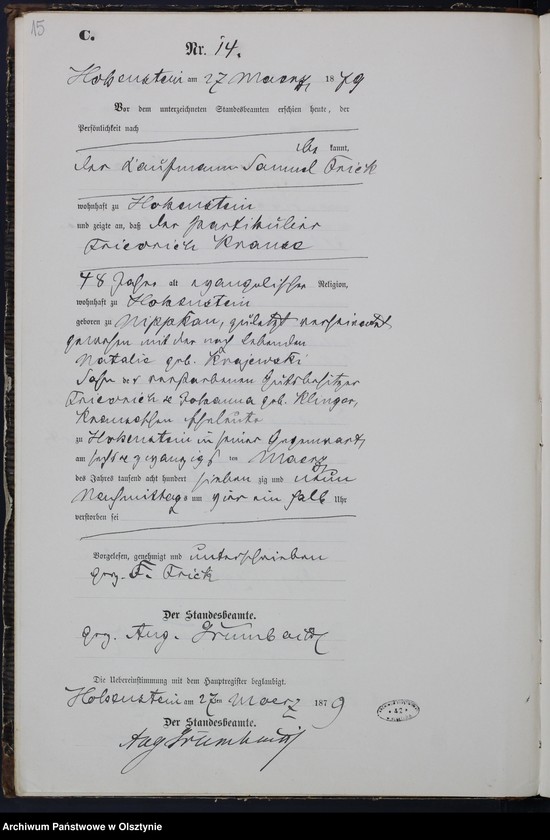 15
C.
Nr. 14.
Hohenstein am 27 Maerz 1879
Vor dem unterzeichneten Standesbeamten erschien heute, der
Persönlichkeit nach
kannt,
der Kaufmann Samuel Frick
wohnhaft zu Hohenstein
und zeigte an, daß der Partikulier
Friedrich Krause
48 Jahre alt evangelischer Religion,
wohnhaft zu Hohenstein
geboren zu zuletzt verheirathet
gewesen mit der noch lebenden
Natalie geb. Krajewski
Sohn der verstorbenen Gutsbesitzer
Friedrich & Johanna geb. Klinger,
Krauseschen Eheleute
zu Hohenstein in seiner Gegenwart,
am sechs & zwanzigsten Maerz
des Jahres tausend acht hundert sieben zig und neun
Nachmittags um vier ein halb Uhr
verstorben sei
Vorgelesen, genehmigt und unterschrieben
gez. Frick
Der Standesbeamte.
gez. Aug.
Die Uebereinstimmung mit dem Hauptregister beglaubigt.
Hohenstein am 27ten Maerz 1879
Der Standesbeamte.
Aug
42
Archiwum Państwowe w Olsztynie